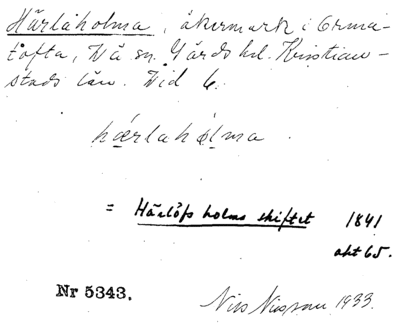 Härlåholma, åkermark i Orma-
tofta, Vä sn. Gärds hd. Kristian-
stads län. Vid 6.
hærlahólma
= Härlöfs holms skiftet 1841
akt 65.
Nr 5343.
Nils Nilsson 1933.